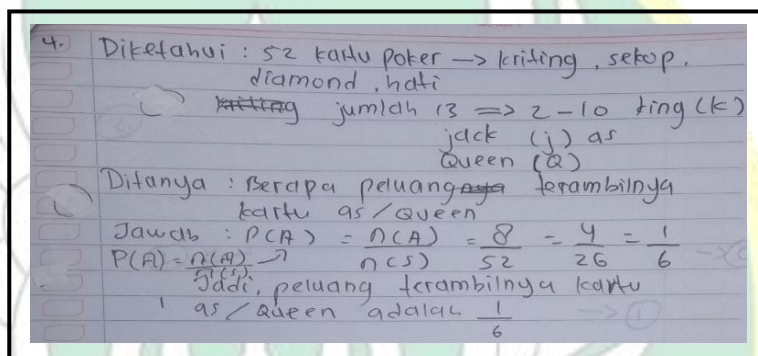 4. Diketahui : 52 kartu poker → kriting, sekop,
diamond, hati
jumlah 13 => 2-10 king (k)
jack (j) as
Queen (Q)
Ditanya : Berapa peluang terambilnya
kartu as / Queen
Jawab : P(A) = n(A)/n(s) = 8/52 = 4/26 = 1/6
P(A) = n(A)/n(s)
Jadi, peluang terambilnya kartu
as / Queen adalah 1/6 → ①